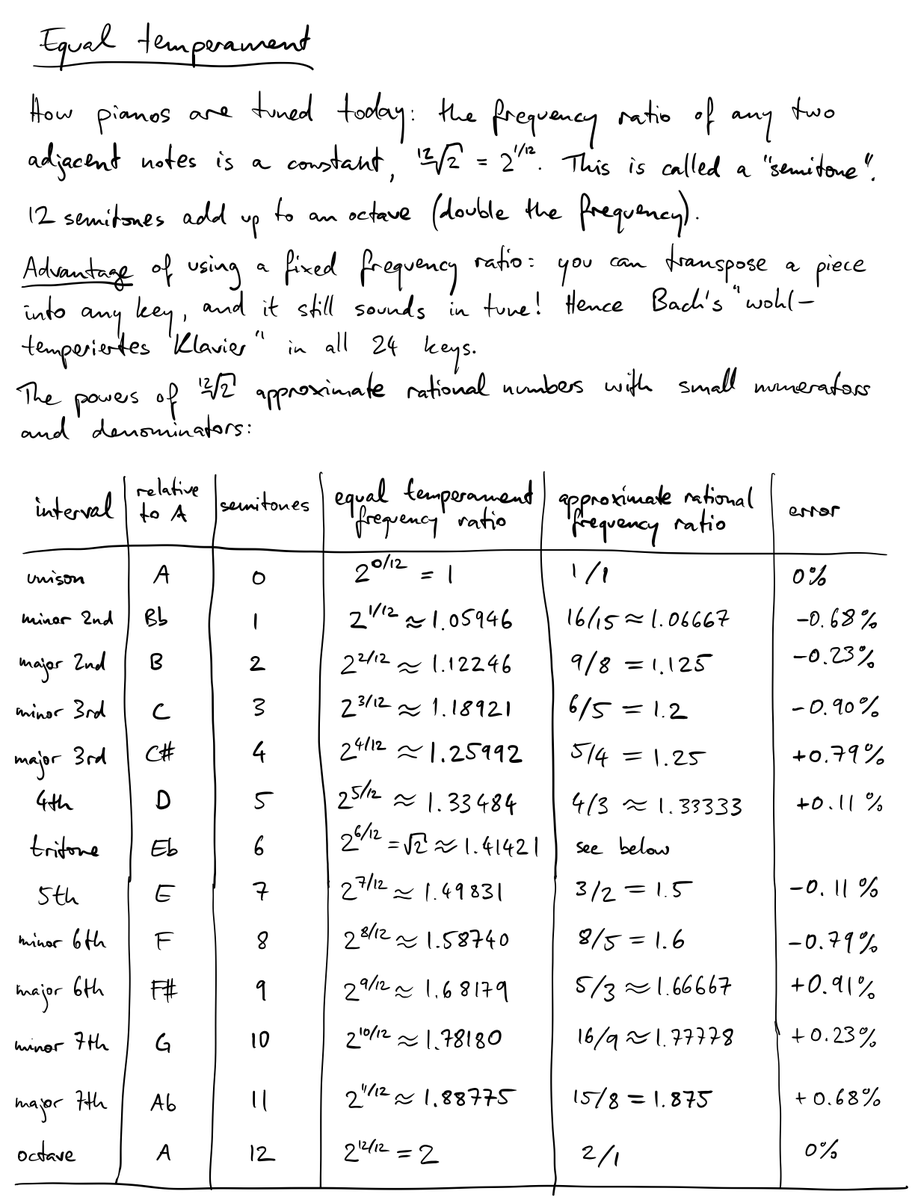 Equal temperament
How pianos are tuned today: the frequency ratio of any two
adjacent notes is a constant, ¹²√2 = 2^1/12. This is called a "semitone".
12 semitones add up to an octave (double the frequency).
Advantage of using a fixed frequency ratio: you can transpose a piece
into any key, and it still sounds in tune! Hence Bach's "wohl-
temperiertes Klavier" in all 24 keys.
The powers of ¹²√2 approximate rational numbers with small numerators
and denominators:
interval | relative to A | semitones | equal temperament frequency ratio | approximate rational frequency ratio | error
unison | A | 0 | 2^0/12 = 1 | 1/1 | 0%
minor 2nd | Bb | 1 | 2^1/12 ≈ 1.05946 | 16/15 ≈ 1.06667 | -0.68%
major 2nd | B | 2 | 2^2/12 ≈ 1.12246 | 9/8 = 1.125 | -0.23%
minor 3rd | C | 3 | 2^3/12 ≈ 1.18921 | 6/5 = 1.2 | -0.90%
major 3rd | C# | 4 | 2^4/12 ≈ 1.25992 | 5/4 = 1.25 | +0.79%
4th | D | 5 | 2^5/12 ≈ 1.33484 | 4/3 ≈ 1.33333 | +0.11%
tritone | Eb | 6 | 2^6/12 = √2 ≈ 1.41421 | see below
5th | E | 7 | 2^7/12 ≈ 1.49831 | 3/2 = 1.5 | -0.11%
minor 6th | F | 8 | 2^8/12 ≈ 1.58740 | 8/5 = 1.6 | -0.79%
major 6th | F# | 9 | 2^9/12 ≈ 1.68179 | 5/3 ≈ 1.66667 | +0.91%
minor 7th | G | 10 | 2^10/12 ≈ 1.78180 | 16/9 ≈ 1.77778 | +0.23%
major 7th | Ab | 11 | 2^11/12 ≈ 1.88775 | 15/8 = 1.875 | +0.68%
octave | A | 12 | 2^12/12 = 2 | 2/1 | 0%